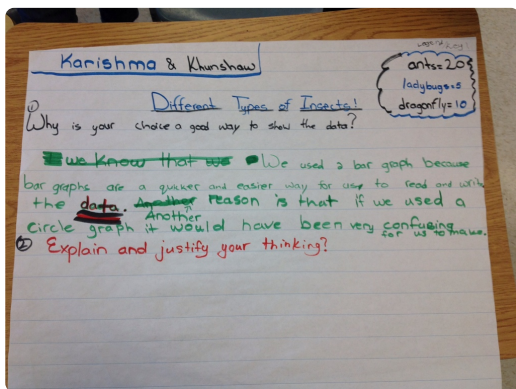 Karishma & Khunshaw
Legend (key)
ants=20
ladybugs=5
dragonfly=10
Different Types of Insects!
① Why is your choice a good way to show the data?
we know that we We used a bar graph because
bar graphs are a quiker and easier way for us to read and write
the data. Another reason is that if we used a
Another
circle graph it would have been very confusing
for us to make.
② Explain and justify your thinking?